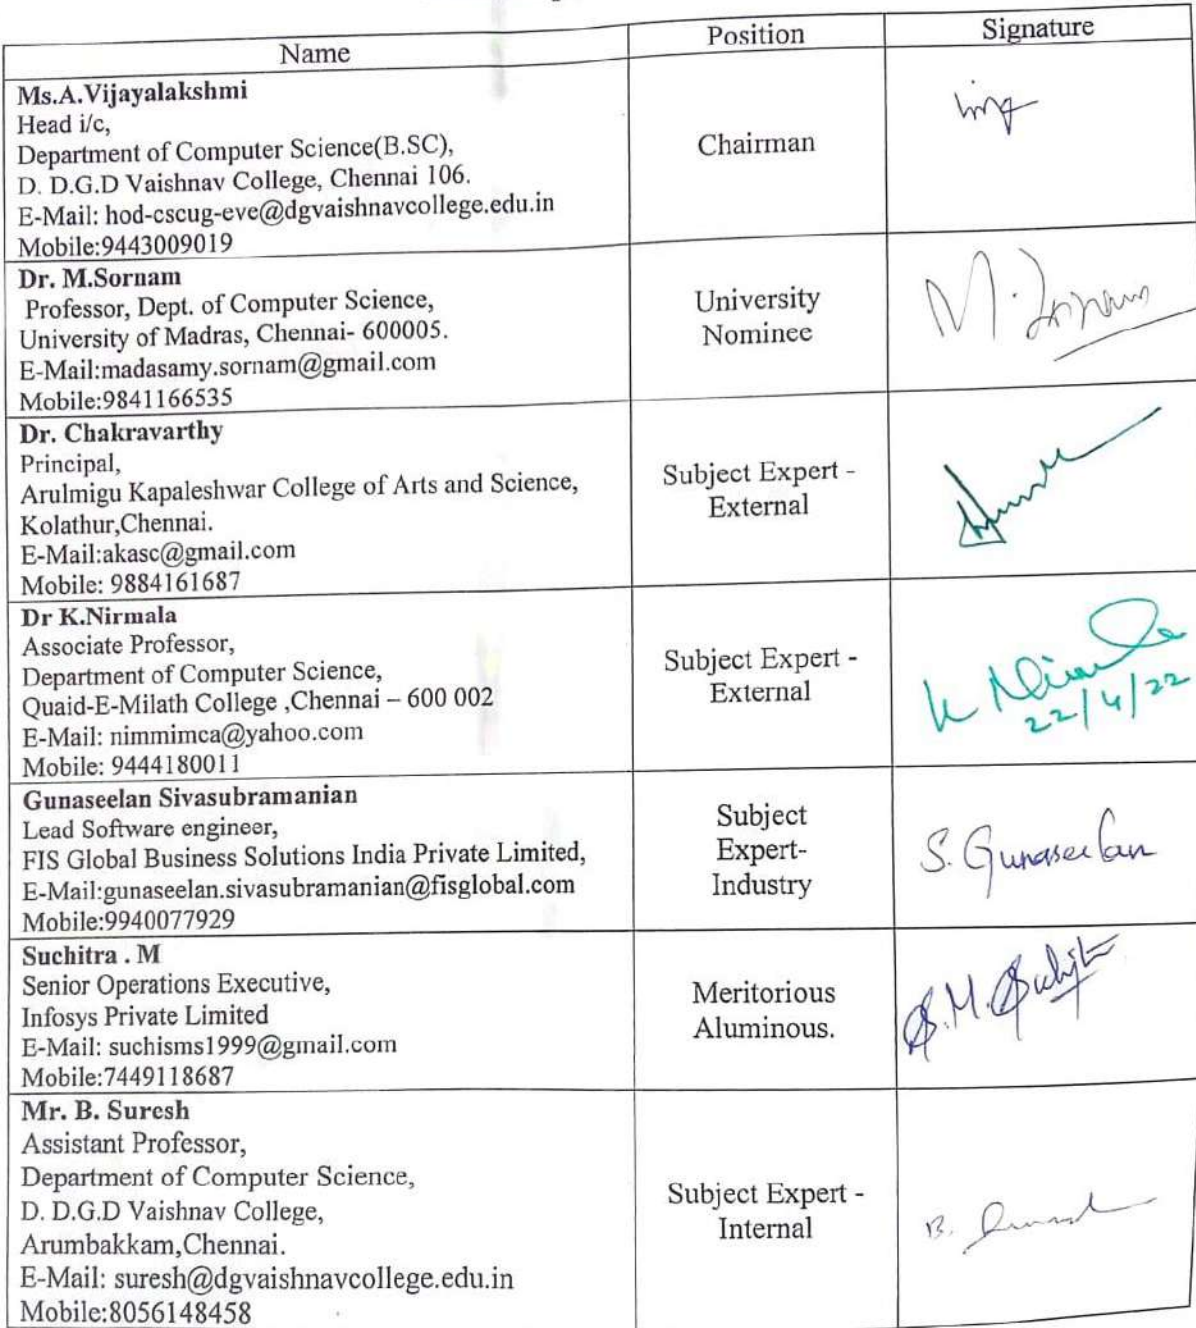 Name Position Signature
Ms.A.Vijayalakshmi
Head i/c,
Department of Computer Science(B.SC),
D. D.G.D Vaishnav College, Chennai 106.
E-Mail: hod-cscug-eve@dgvaishnavcollege.edu.in
Mobile:9443009019
Chairman
Dr. M.Sornam
Professor, Dept. of Computer Science,
University of Madras, Chennai- 600005.
E-Mail:madasamy.sornam@gmail.com
Mobile:9841166535
University
Nominee
M. Sornam
Dr. Chakravarthy
Principal,
Arulmigu Kapaleshwar College of Arts and Science,
Kolathur,Chennai.
E-Mail:akasc@gmail.com
Mobile: 9884161687
Subject Expert -
External
Dr K.Nirmala
Associate Professor,
Department of Computer Science,
Quaid-E-Milath College ,Chennai – 600 002
E-Mail: nimmimca@yahoo.com
Mobile: 9444180011
Subject Expert -
External
K Nirmala
22/4/22
Gunaseelan Sivasubramanian
Lead Software engineer,
FIS Global Business Solutions India Private Limited,
E-Mail:gunaseelan.sivasubramanian@fisglobal.com
Mobile:9940077929
Subject
Expert-
Industry
S. Gunaseelan
Suchitra . M
Senior Operations Executive,
Infosys Private Limited
E-Mail: suchisms1999@gmail.com
Mobile:7449118687
Meritorious
Aluminous.
Mr. B. Suresh
Assistant Professor,
Department of Computer Science,
D. D.G.D Vaishnav College,
Arumbakkam,Chennai.
E-Mail: suresh@dgvaishnavcollege.edu.in
Mobile:8056148458
Subject Expert -
Internal
B. Suresh